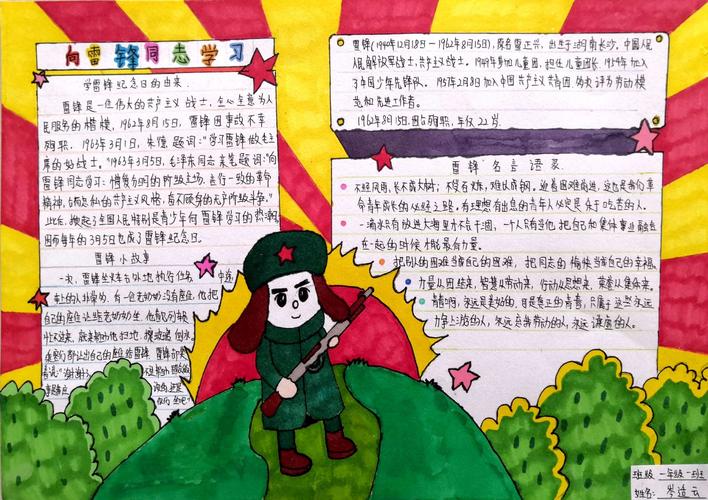 向雷锋同志学习
学雷锋纪念日的由来
雷锋是一位伟大的共产主义战士,全心全意为人
民服务的楷模,1962年8月15日,雷锋因事故不幸
殉职,1963年3月1日,朱德题词:"学习雷锋做毛主
席的好战士,"1963年3月5日,毛泽东同志亲笔题词:"向
雷锋同志学习:憎爱分明的阶级立场,言行一致的革命
精神,公而忘私的共产主义风格,奋不顾身的无产阶级斗争。"
此后,掀起了全国人民特别是青少年向雷锋学习的热潮,
因而每年的3月5日也成了雷锋纪念日。
雷锋小故事
一次,雷锋坐火车去外地执行任务
车上的人非常多,有一位老奶奶没有座位,他把
自己的座位让给老奶奶坐,
雷锋(1940年12月18日—1962年8月15日),原名雷正兴,出生于湖南长沙,中国人民
解放军战士,共产主义战士。1949年参加儿童团,担任儿童团长,1954年加入
了中国少年先锋队。1957年2月8日加入中国共产主义青年团,
范和先进工作者。
1962年8月15日,因公殉职,年仅22岁。
雷锋名言语录
不经风雨,长不成大树,不受百炼,难以成钢。迎着困难前进,这也是我们革
命青年成长的必经之路。有理想有出息的青年人必定是乐于吃苦的人。
一滴水只有放进大海里才不会干涸,一个人只有当他把自己和集体事业融合
在一起的时候才能最有力量。
把别人的困难当自己的困难,把同志的愉快当自己的幸福。
力量从团结来,智慧从劳动来,行动从思想来,荣誉从集体来。
青春啊,永远是美好的,可是真正的青春,只属于这些永远
力争上游的人,永远忘我劳动的人,永远谦虚的人。
班级 一年级一班
姓名: